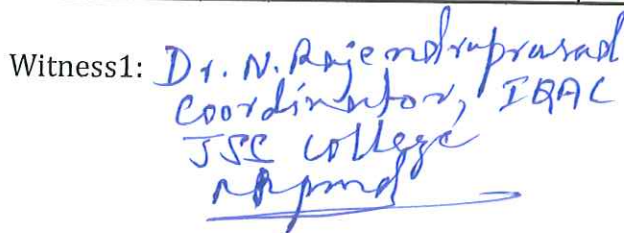 Witness1: Dr. N. Rajendraprasad
Coordinator, IQAC
JSS College